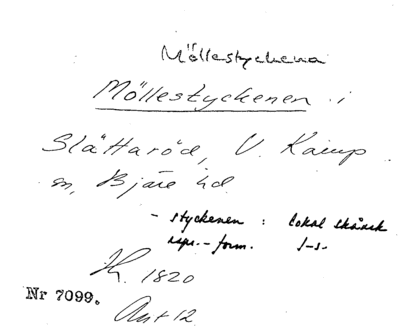 Möllestyckena
Möllestyckenen i
Slättaröd, V. Karup
sn, Bjäre hd
- styckenen : lokal skånsk
repr.-form.
K. 1820
Nr 7099.
Akt 12